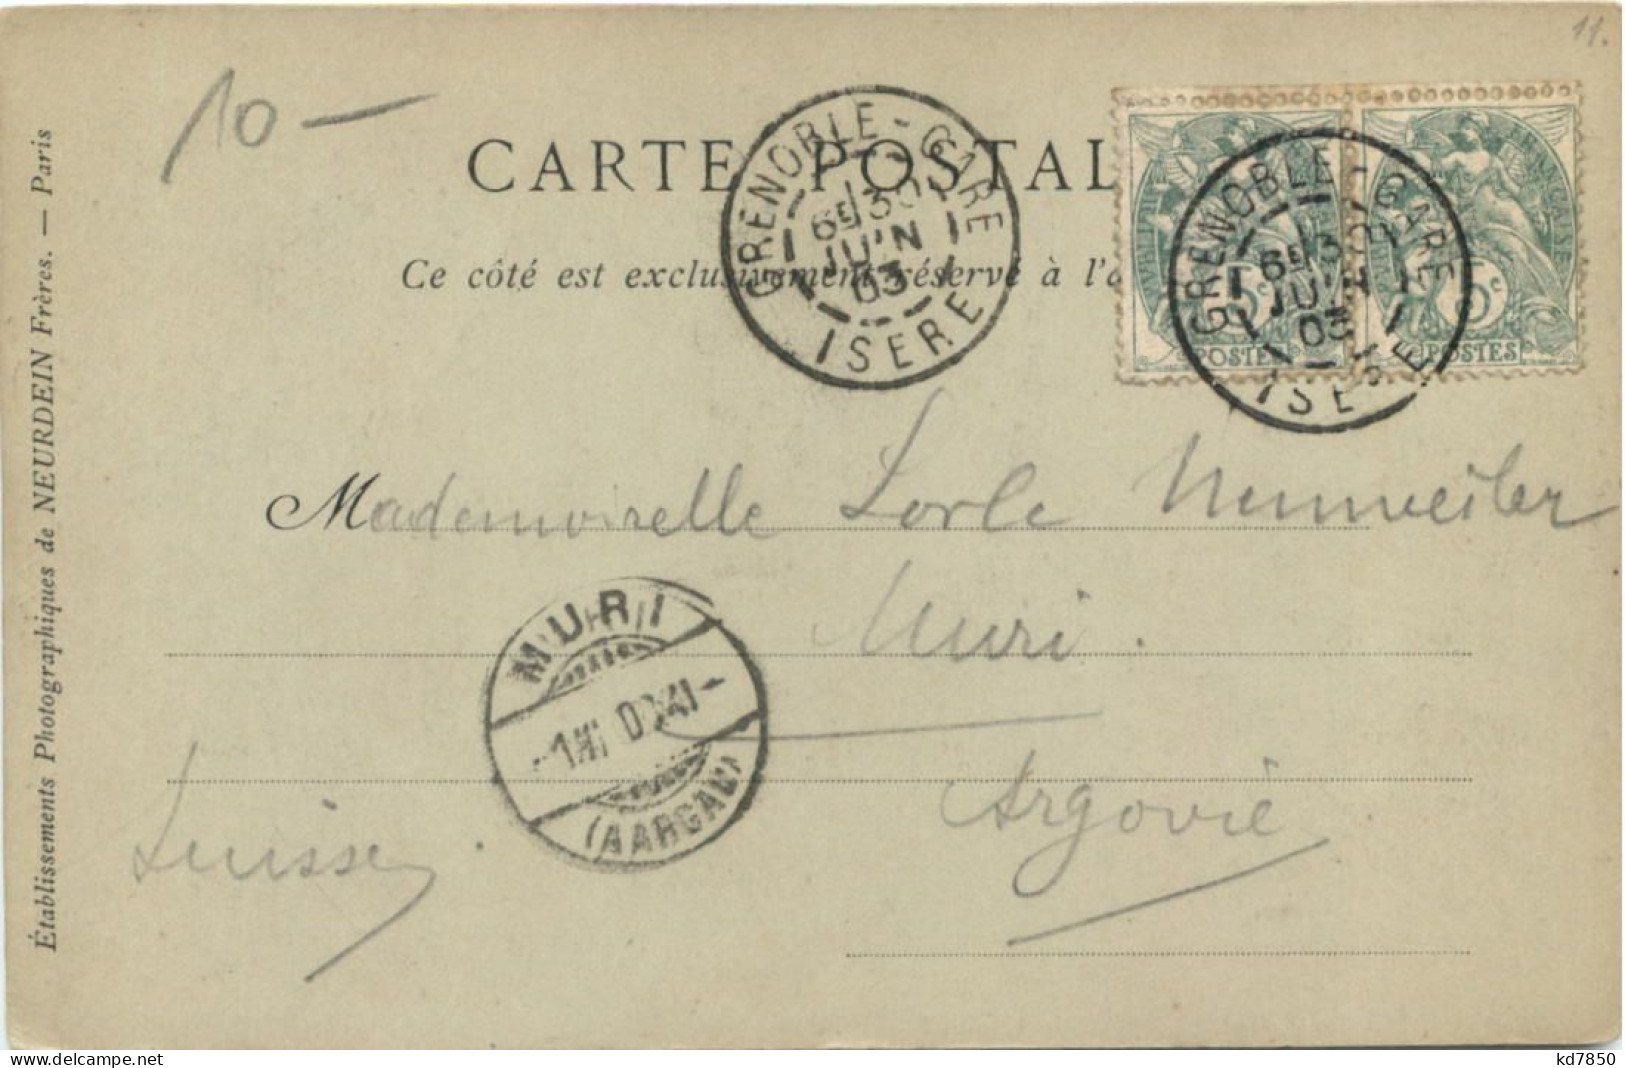 11.
10 —
CARTE POSTAL
Ce côté est exclusivement réservé à l'a
GRENOBLE - GARE
6E 30
JUIN
03
ISERE
GRENOBLE - GARE
6E 30
JUIN
03
ISERE
FRANÇAISE
5c
5c
POSTES
POSTES
Mademoiselle Lorle Neuweiler
Muri.
Argovie
Suisse.
MURI
(AARGAU)
Établissements Photographiques de NEURDEIN Frères. — Paris
www.delcampe.net
kd7850